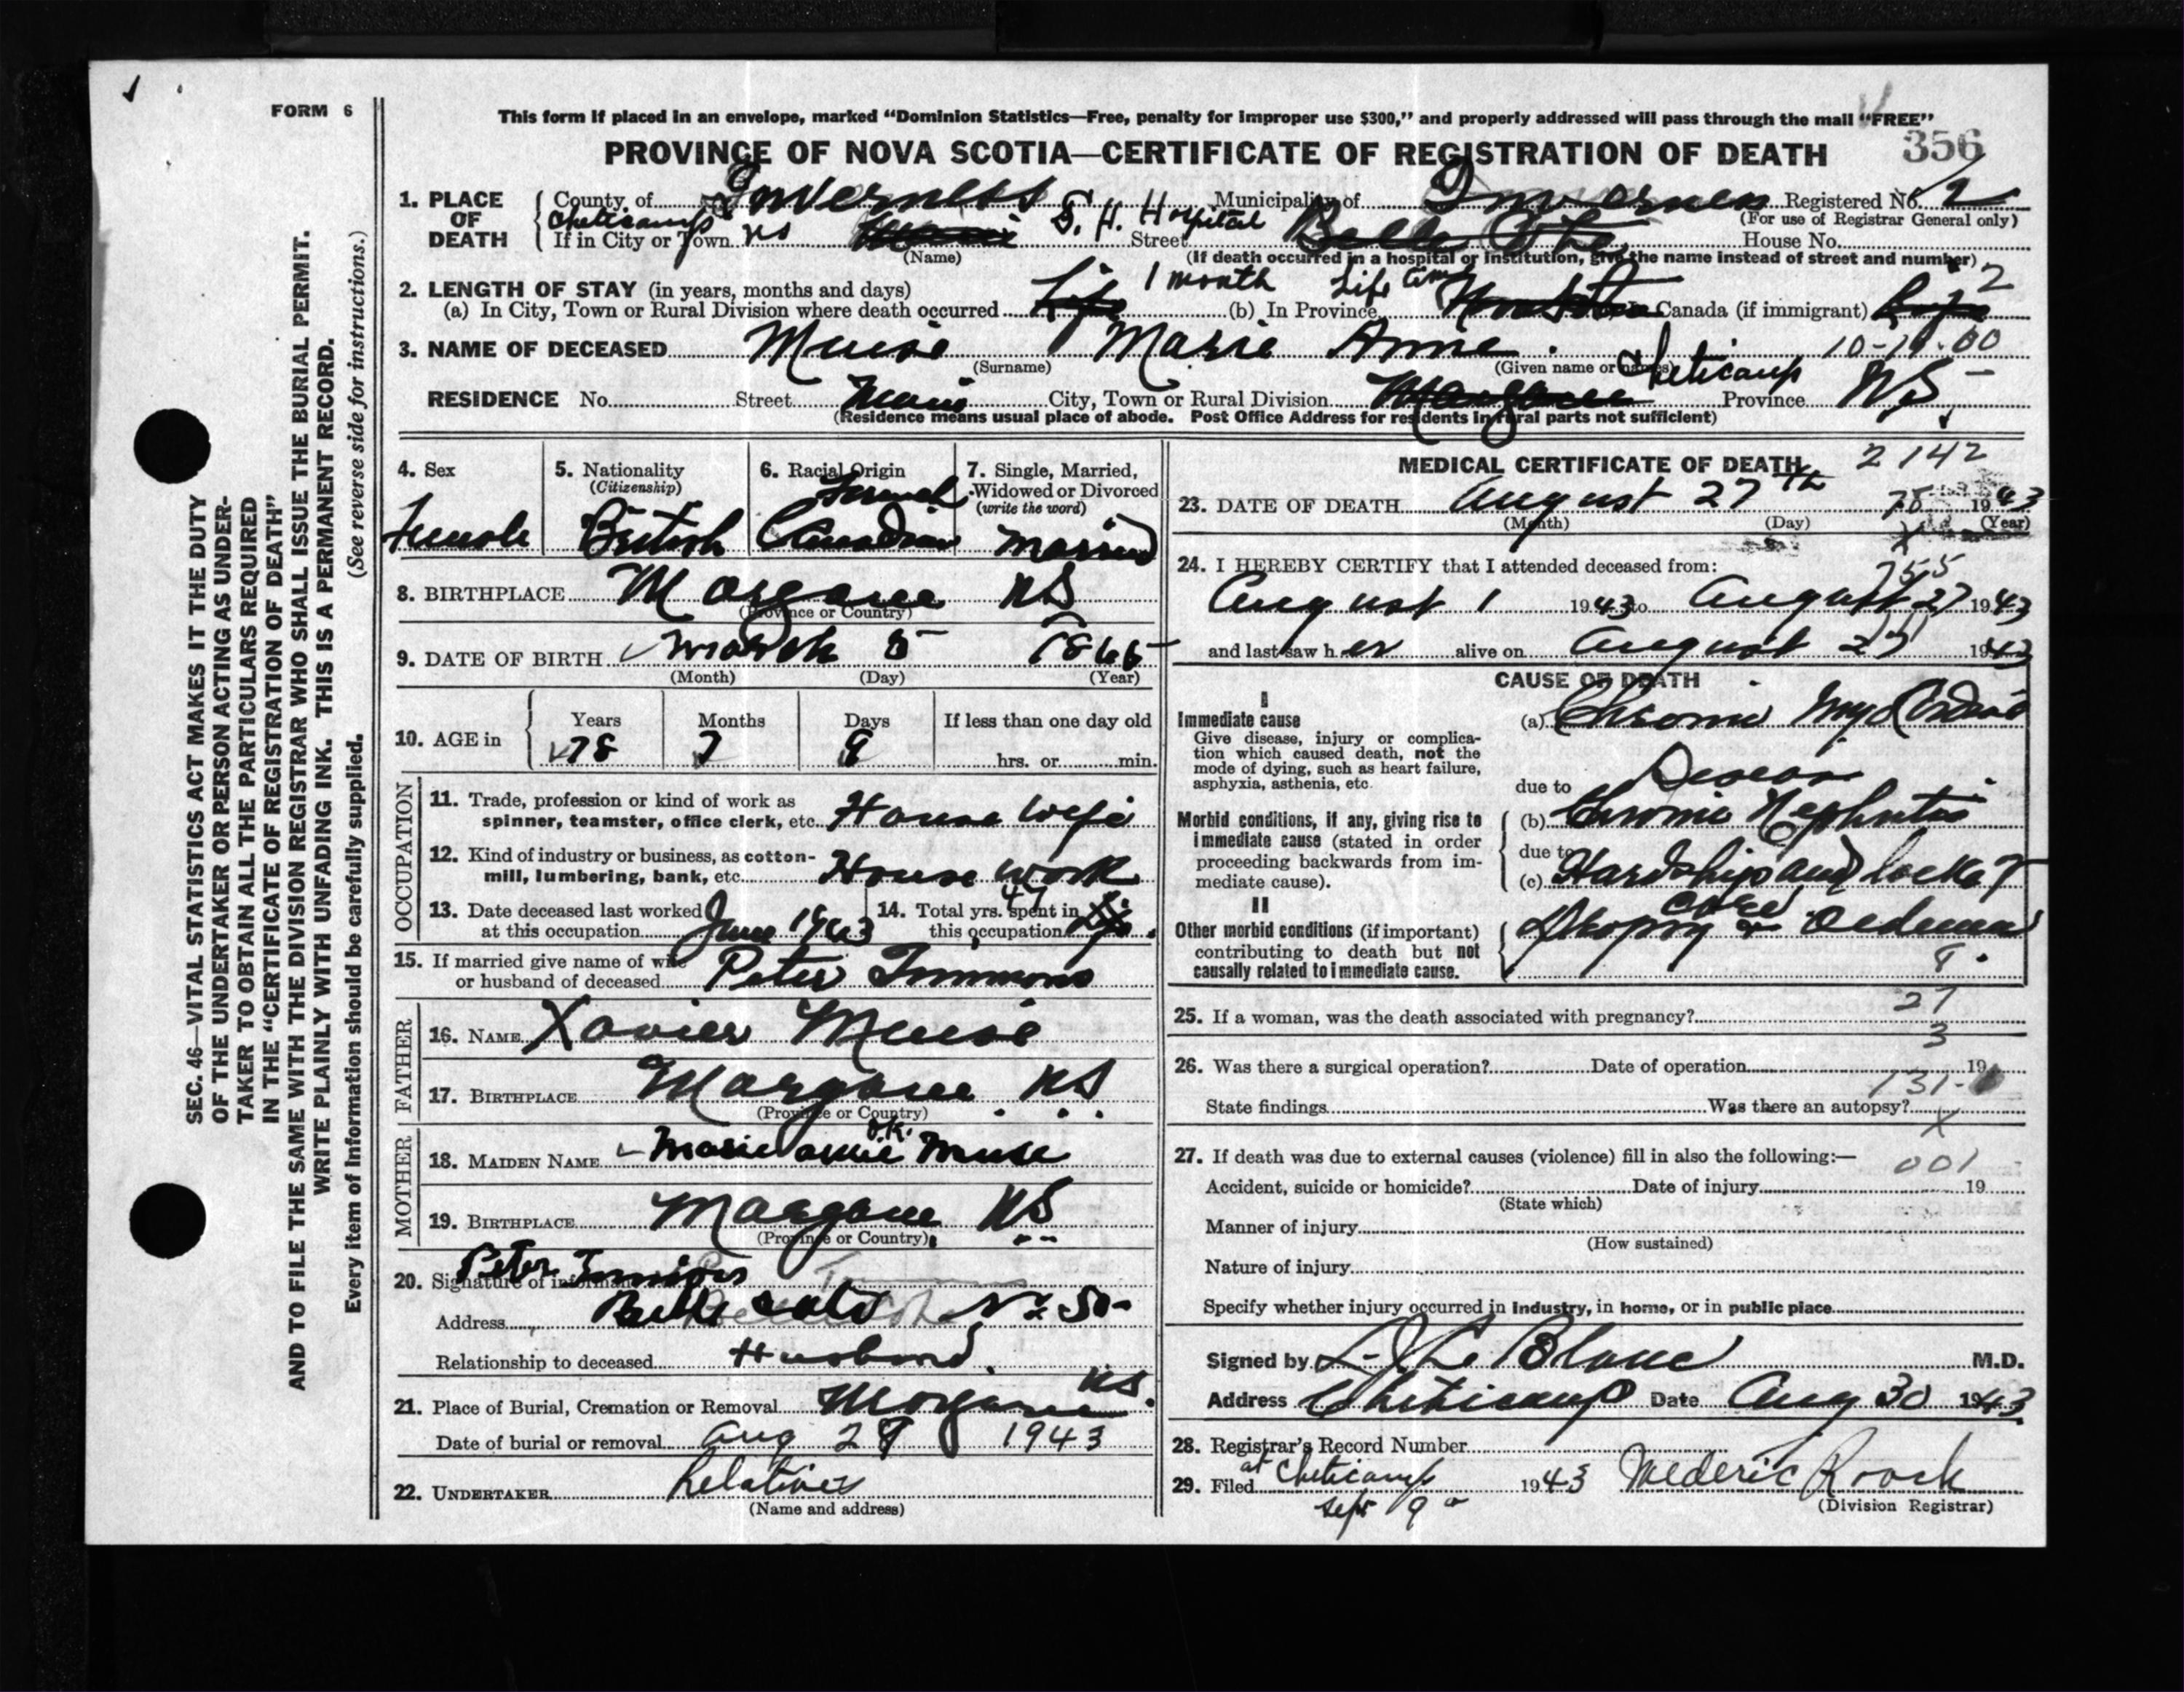 FORM 6
This form if placed in an envelope, marked “Dominion Statistics—Free, penalty for improper use $300,” and properly addressed will pass through the mail “FREE”
PROVINCE OF NOVA SCOTIA—CERTIFICATE OF REGISTRATION OF DEATH 356
SEC. 46—VITAL STATISTICS ACT MAKES IT THE DUTY
OF THE UNDERTAKER OR PERSON ACTING AS UNDER-
TAKER TO OBTAIN ALL THE PARTICULARS REQUIRED
IN THE “CERTIFICATE OF REGISTRATION OF DEATH”
AND TO FILE THE SAME WITH THE DIVISION REGISTRAR WHO SHALL ISSUE THE BURIAL PERMIT.
WRITE PLAINLY WITH UNFADING INK. THIS IS A PERMANENT RECORD.
Every item of Information should be carefully supplied. (See reverse side for instructions.)
1. PLACE OF DEATH County of Inverness Municipality of Inverness Registered No. 2
(For use of Registrar General only)
Cheticamp S. H. Hospital
If in City or Town NS Street Belle Cote House No.
(Name) (If death occurred in a hospital or institution, give the name instead of street and number)
2. LENGTH OF STAY (in years, months and days) 1 month Life time 2
(a) In City, Town or Rural Division where death occurred Life (b) In Province In Canada (if immigrant) Life
3. NAME OF DECEASED Muise Marie Anne 10-11-00
(Surname) (Given name or names) Cheticamp
RESIDENCE No. Street City, Town or Rural Division Margaree Province N.S.
(Residence means usual place of abode. Post Office Address for residents in rural parts not sufficient)
4. Sex Female
5. Nationality (Citizenship) British
6. Racial Origin French Canadian
7. Single, Married, Widowed or Divorced (write the word) Married
8. BIRTHPLACE Margaree NS
(Province or Country)
9. DATE OF BIRTH March 5 1865
(Month) (Day) (Year)
10. AGE in Years 78 Months 7 Days 9 If less than one day old hrs. or min.
OCCUPATION
11. Trade, profession or kind of work as
spinner, teamster, office clerk, etc. House Wife
12. Kind of industry or business, as cotton-
mill, lumbering, bank, etc. House work
13. Date deceased last worked
at this occupation June 1943
14. Total yrs. spent in
this occupation 47 Life
15. If married give name of wife
or husband of deceased Peter Timmons
FATHER
16. NAME Xavier Muise
17. BIRTHPLACE Margaree NS
(Province or Country)
MOTHER
18. MAIDEN NAME Marie Annie Muise O.K.
19. BIRTHPLACE Margaree NS
(Province or Country)
20. Signature of informant Peter Timmons
Address Belle Cote NS
Relationship to deceased Husband
21. Place of Burial, Cremation or Removal Margaree NS.
Date of burial or removal Aug 29 1943
22. UNDERTAKER Relatives
(Name and address)
MEDICAL CERTIFICATE OF DEATH 2142
23. DATE OF DEATH August 27th 1943
(Month) (Day) (Year)
24. I HEREBY CERTIFY that I attended deceased from:
August 1 1943 to August 27 1943
and last saw her alive on August 27 1943
CAUSE OF DEATH
I
Immediate cause
Give disease, injury or complica-
tion which caused death, not the
mode of dying, such as heart failure,
asphyxia, asthenia, etc.
(a) Chronic Myocardial
Disease
due to
Morbid conditions, if any, giving rise to
immediate cause (stated in order
proceeding backwards from im-
mediate cause).
(b) Chronic Nephritis
due to
(c) Hardship and lack of
care
II
Other morbid conditions (if important)
contributing to death but not
causally related to immediate cause.
Dropsy or Oedema
9.
27
25. If a woman, was the death associated with pregnancy?
3
26. Was there a surgical operation? Date of operation 19
131-
State findings Was there an autopsy?
X
27. If death was due to external causes (violence) fill in also the following:— 001
Accident, suicide or homicide? Date of injury 19
(State which)
Manner of injury
(How sustained)
Nature of injury
Specify whether injury occurred in industry, in home, or in public place
Signed by L. J. Le Blanc M.D.
Address Cheticamp Date Aug 30 1943
28. Registrar’s Record Number
29. Filed at Cheticamp 1943 Mederic Roach
Sept 9 (Division Registrar)